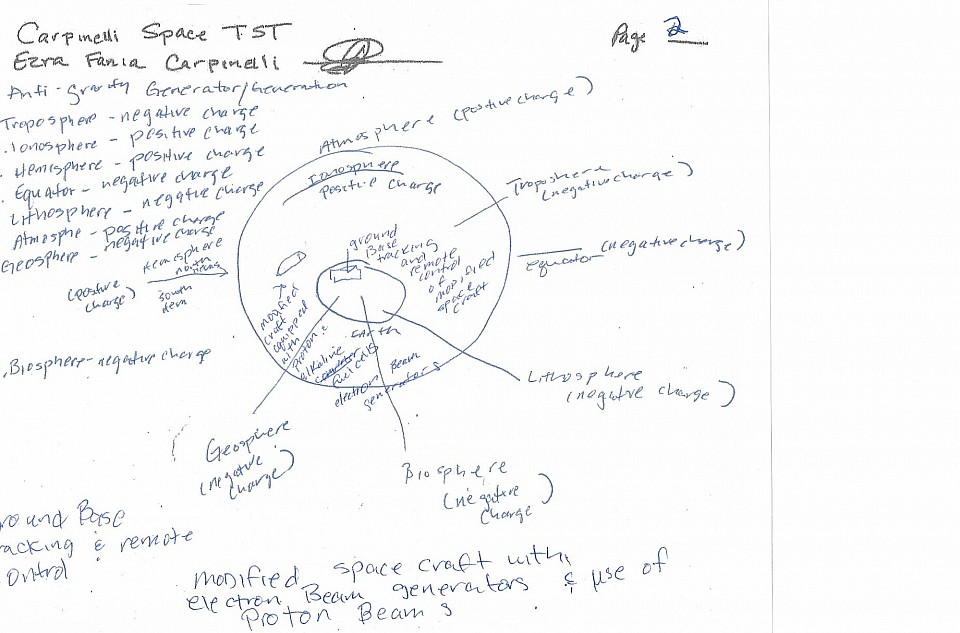 Carpinelli Space TST
Page 2
Ezra Fania Carpinelli
Anti-gravity Generator/Generation
Troposphere - negative charge
Ionosphere - positive charge
Hemisphere - positive charge
Equator - negative charge
Lithosphere - negative charge
Atmosphe - positive charge
Geosphere - negative charge
Hemisphere
north
(positive
charge)
south
dern
Biosphere - negative charge
Atmosphere (positive charge)
Ionosphere
Positive charge
Troposhere
(negative charge)
Equator (negative charge)
ground
Base
tracking
and
remote
control
of
modified
space
craft
modified
craft
equipped
with
Proton
alkaline
fuel cells
Earth
electron Beam
generators
Lithosphere
(negative charge)
Geosphere
(negative
charge)
Biosphere
(negative
charge)
round Base
racking & remote
ontrol
modified space craft with
electron Beam generators & use of
Proton Beams